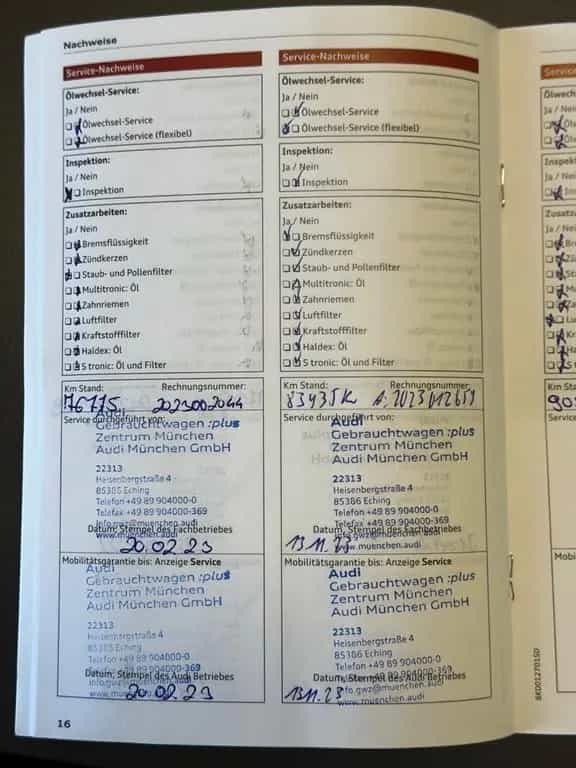 Nachweise
Service-Nachweise
Ölwechsel-Service:
Ja / Nein
Ölwechsel-Service
Ölwechsel-Service (flexibel)
Inspektion:
Ja / Nein
Inspektion
Zusatzarbeiten:
Ja / Nein
Bremsflüssigkeit
Zündkerzen
Staub- und Pollenfilter
Multitronic: Öl
Zahnriemen
Luftfilter
Kraftstofffilter
Haldex: Öl
S tronic: Öl und Filter
Km Stand: Rechnungsnummer:
76715 2023002044
Service durchgeführt von:
Audi
Gebrauchtwagen :plus
Zentrum München
Audi München GmbH
22313
Heisenbergstraße 4
85386 Eching
Telefon +49 89 904000-0
Telefax +49 89 904000-369
info.gwz@muenchen.audi
www.muenchen.audi
Datum, Stempel des Fachbetriebes
20.02.23
Mobilitätsgarantie bis: Anzeige Service
Audi
Gebrauchtwagen :plus
Zentrum München
Audi München GmbH
22313
Heisenbergstraße 4
85386 Eching
Telefon +49 89 904000-0
Telefax +49 89 904000-369
Datum, Stempel des Audi Betriebes
info.gwz@muenchen.audi
www.muenchen.audi
20.02.23
16
Service-Nachweise
Ölwechsel-Service:
Ja / Nein
Ölwechsel-Service
Ölwechsel-Service (flexibel)
Inspektion:
Ja / Nein
Inspektion
Zusatzarbeiten:
Ja / Nein
Bremsflüssigkeit
Zündkerzen
Staub- und Pollenfilter
Multitronic: Öl
Zahnriemen
Luftfilter
Kraftstofffilter
Haldex: Öl
S tronic: Öl und Filter
Km Stand: Rechnungsnummer:
83435K
Service durchgeführt von:
Audi
Gebrauchtwagen :plus
Zentrum München
Audi München GmbH
22313
Heisenbergstraße 4
85386 Eching
Telefon +49 89 904000-0
Telefax +49 89 904000-369
info.gwz@muenchen.audi
Datum, Stempel des Fachbetriebes
www.muenchen.audi
13.11.23
Mobilitätsgarantie bis: Anzeige Service
Audi
Gebrauchtwagen :plus
Zentrum München
Audi München GmbH
22313
Heisenbergstraße 4
85386 Eching
Telefon +49 89 904000-0
Telefax +49 89 904000-369
Datum, Stempel des Audi Betriebes
info.gwz@muenchen.audi
www.muenchen.audi
13.11.23